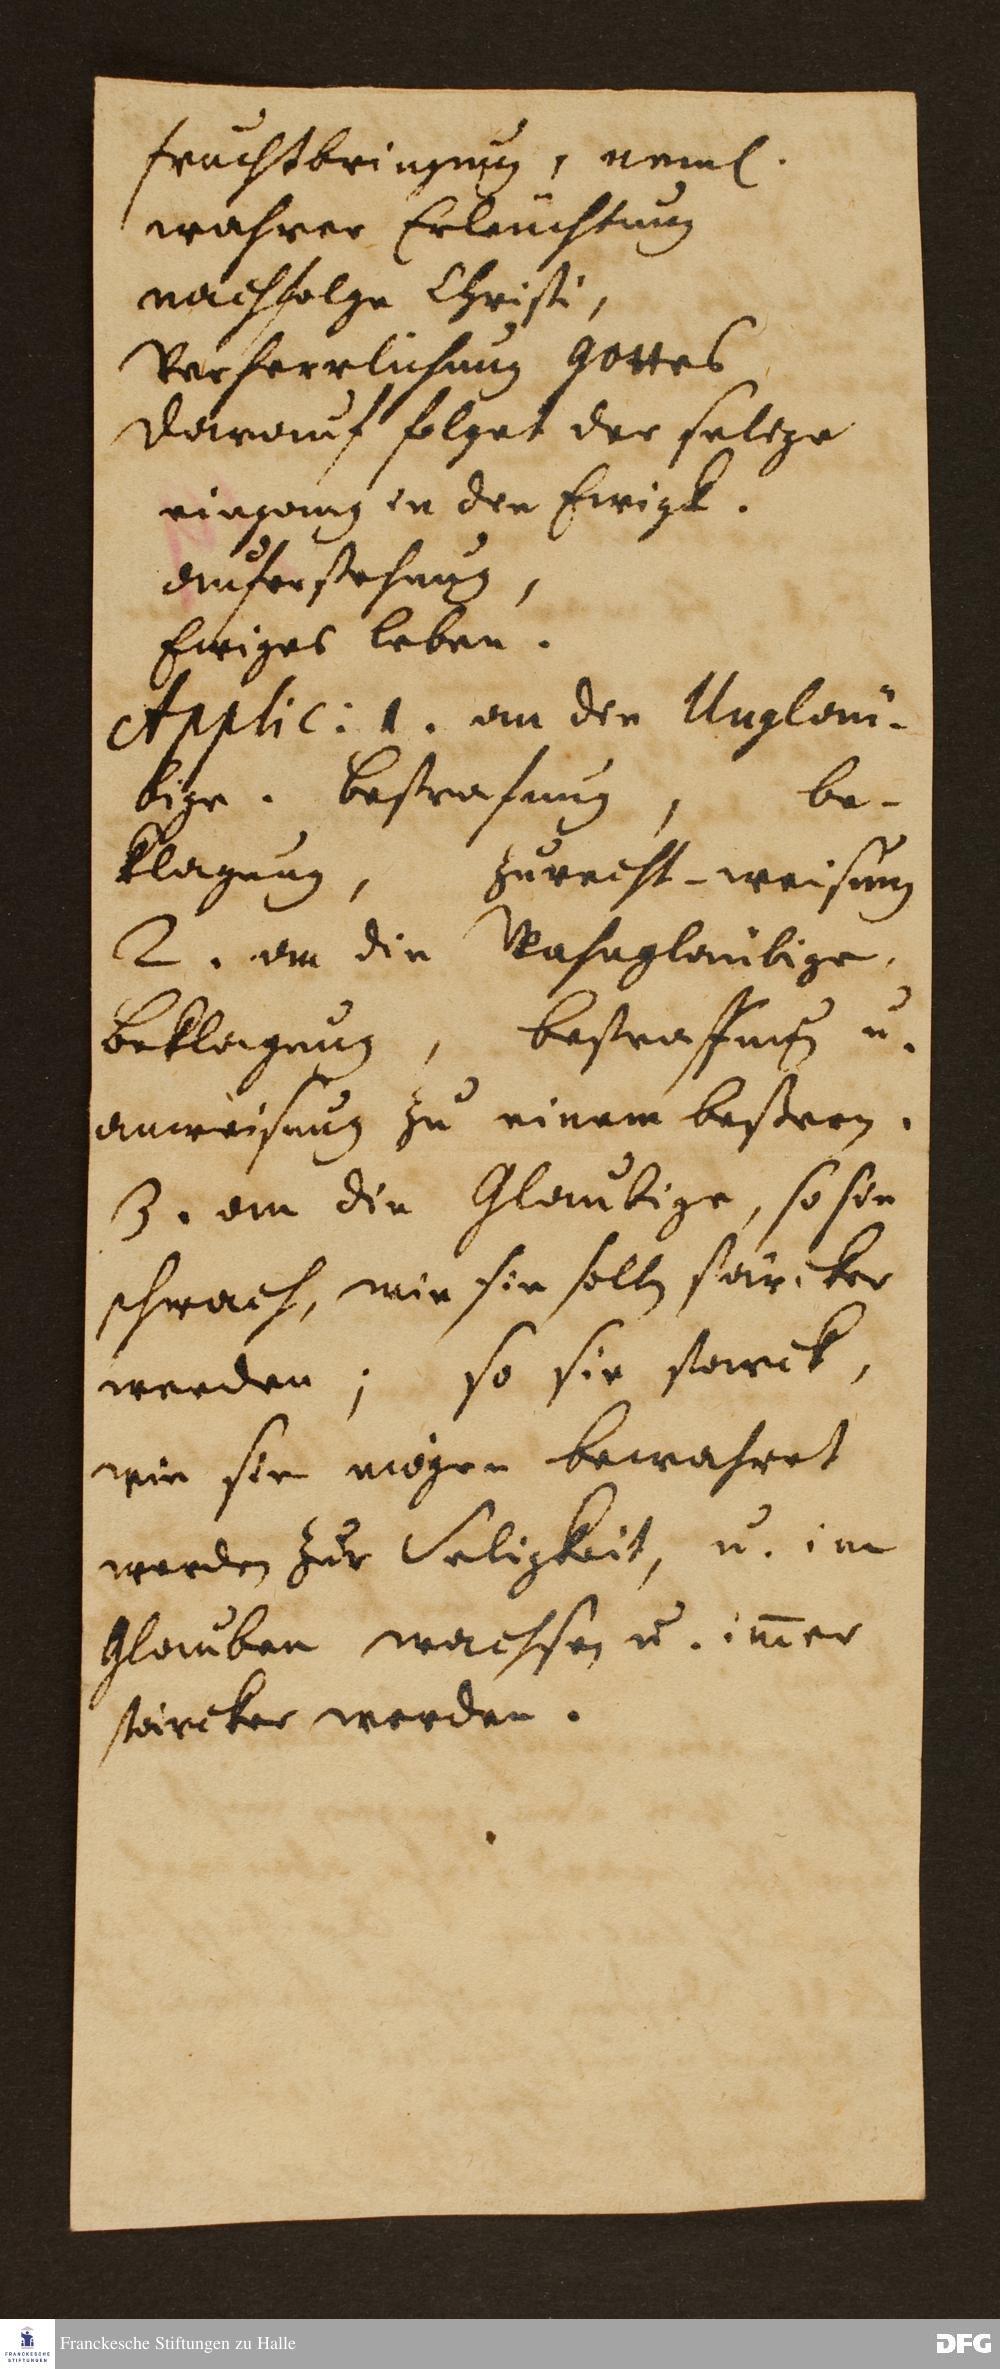 fruchtbringung, neml.
wahrer Erleuchtung
nachfolge Christi,
Verherrlichung Gottes
Darauf folget der selige
eingang in die Ewigk.
aufferstehung,
Ewiges leben.
Applic: 1. an die Unglaü-
bige. bestrafung, be-
klagung, zurecht-weisung
2. an die Wahnglaübige.
beklagung, bestraffung u.
anweisung zu einem beßern.
3. an die Glaubige, so sie
schwach, wie sie solln stärcker
werden; so sie starck,
wie sie mögen bewahret
werden zur Seligkeit, u. im
Glauben wachsen u. im̅er
stärcker werden.
FRANCKESCHE
STIFTUNGEN
Franckesche Stiftungen zu Halle
DFG